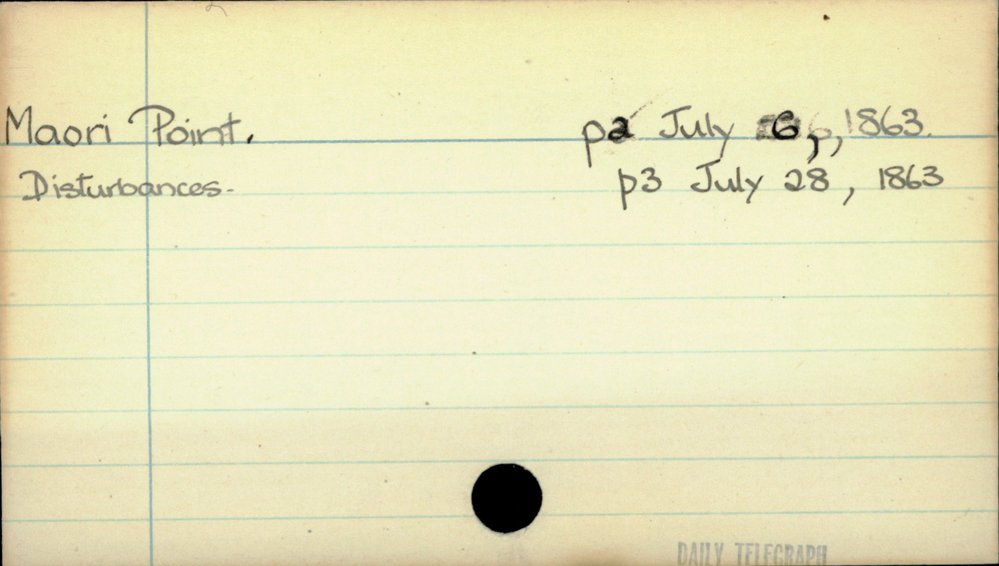 Maori Point. p2 July 6, 1863.
Disturbances. p3 July 28, 1863
DAILY TELEGRAPH